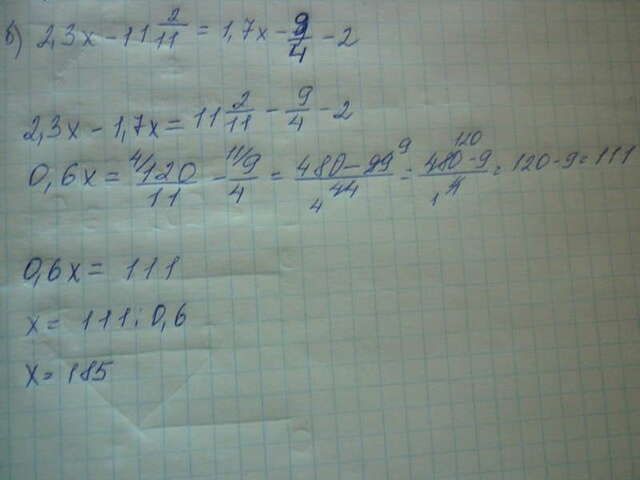 в) 2,3x - 11 2/11 = 1,7x - 9/4 - 2
2,3x - 1,7x = 11 2/11 - 9/4 - 2
0,6x = 4/120/11 - 11/9/4 = 480-99 9/4 44 = 120 480-9/1 4 = 120-9=111
0,6x = 111
x = 111:0,6
x = 185